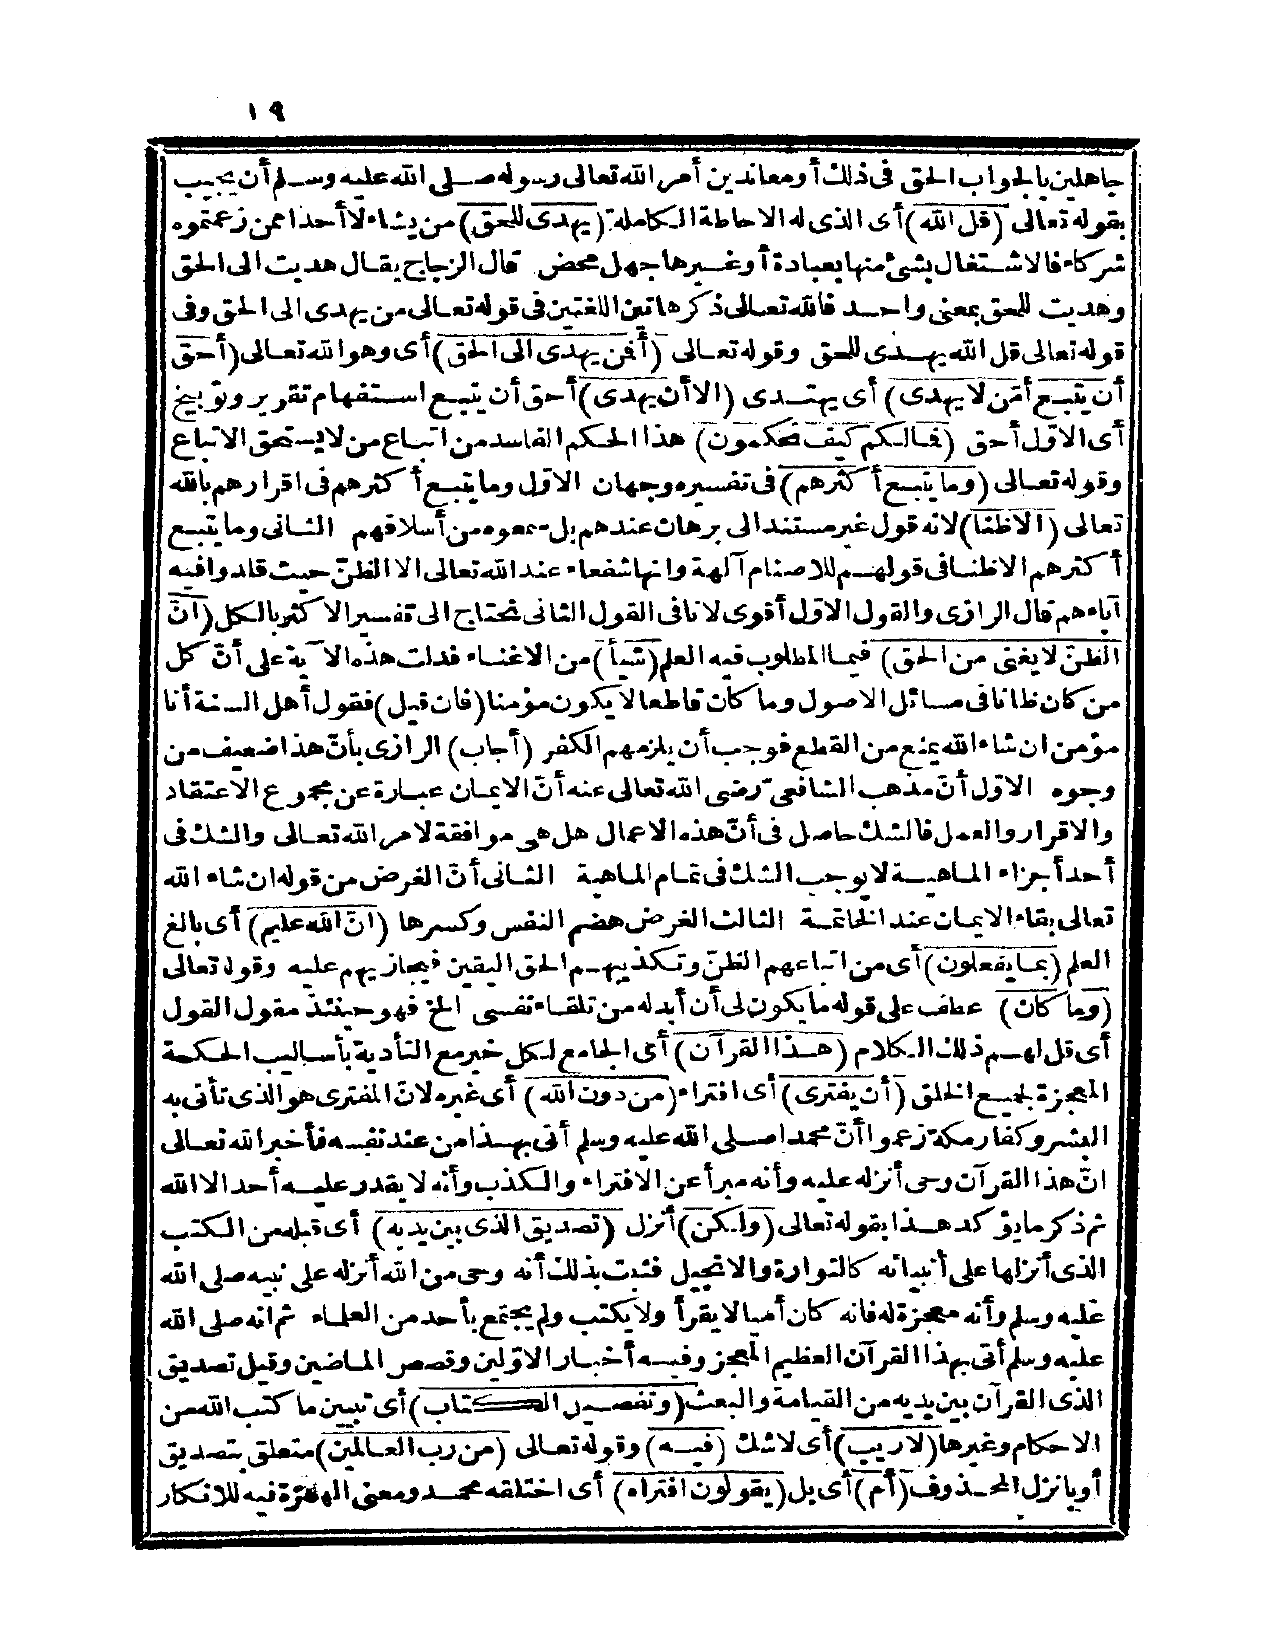 ١٩
جاهلين بالجواب الحق في ذلك أو معاندين أمر الله تعالى رسوله صلى الله عليه وسلم أن يجيب
بقوله تعالى (قل الله) أى الذى له الاحاطة الكاملة (يهدى للحق) من يشاء لا أحدا ممن زعمتموه
شركاء فالاشتغال بشئ منها بعبادة أو غيرها جهل محض قال الزجاج يقال هديت الى الحق
وهديت للحق بمعنى واحد فالله تعالى ذكر هاتين اللغتين فى قوله تعالى من يهدى الى الحق وفى
قوله تعالى قل الله يهدى للحق وقوله تعالى (أفمن يهدى الى الحق) أى وهو الله تعالى (أحق
أن يتبع أمّن لا يهدى) أى يهتدى (الا أن يهدى) أحق أن يتبع استفهام تقرير وتوبيخ
أى الاوّل أحق (فمالكم كيف تحكمون) هذا الحكم الفاسد من اتباع من لا يستحق الاتباع
وقوله تعالى (وما يتبع أكثرهم) فى تفسيره وجهان الاوّل وما يتبع أكثرهم فى اقرارهم بالله
تعالى (الا ظنا) لانه قول غير مستند الى برهان عندهم بل سمعوه من أسلافهم الثانى وما يتبع
أكثرهم الا ظنا فى قولهم للاصنام آلهة وانها شفعاء عند الله تعالى الا الظنّ حيث قلدوا فيه
آباءهم قال الرازى والقول الاوّل أقوى لانا فى القول الثانى نحتاج الى تفسير الاكثر بالكل (انّ
الظنّ لا يغنى من الحق) فيما المطلوب فيه العلم (شيأ) من الاغناء فدلت هذه الآية على أنّ كل
من كان ظانا فى مسائل الاصول وما كان قاطعا لا يكون مؤمنا (فان قيل) فقول أهل السنة أنا
مؤمن ان شاء الله يمنع من القطع فوجب أن يلزمهم الكفر (أجاب) الرازى بأنّ هذا ضعيف من
وجوه الاوّل أنّ مذهب الشافعىّ رضى الله تعالى عنه أنّ الايمان عبارة عن مجموع الاعتقاد
والاقرار والعمل فالشك حاصل فى أنّ هذه الاعمال هل هى موافقة لامر الله تعالى والشك فى
أحد أجزاء الماهية لا يوجب الشك فى تمام الماهية الثانى أنّ الغرض من قوله ان شاء الله
تعالى بقاء الايمان عند الخاتمة الثالث الغرض هضم النفس وكسرها (انّ الله عليم) أى بالغ
العلم (بما يفعلون) أى من اتباعهم الظنّ وتكذيبهم الحق اليقين فيجازيهم عليه وقوله تعالى
(وما كان) عطف على قوله ما يكون لى أن أبدله من تلقاء نفسى الخ فهو حينئذ مقول القول
أى قل لهم ذلك الكلام (هذا القرآن) أى الجامع لكل خير مع التأدية بأساليب الحكمة
المعجزة لجميع الخلق (أن يفترى) أى افتراء (من دون الله) أى غيره لانّ المفترى هو الذى تأتى به
البشر وكفار مكة زعموا أنّ محمدا صلى الله عليه وسلم أتى بهذا من عند نفسه فأخبر الله تعالى
انّ هذا القرآن وحى أنزله عليه وأنه مبرأ عن الافتراء والكذب وأنه لا يقدر عليه أحد الا الله
ثم ذكر ما يؤكد هذا بقوله تعالى (ولكن) أنزل (تصديق الذى بين يديه) أى قبله من الكتب
الذى أنزلها على أنبيائه كالتوارة والانجيل فثبت بذلك أنه وحى من الله أنزله على نبيه صلى الله
عليه وسلم وأنه معجزة له فانه كان أميا لا يقرأ ولا يكتب ولم يجتمع بأحد من العلماء ثم انه صلى الله
عليه وسلم أتى بهذا القرآن العظيم المعجز وفيه أخبار الاوّلين وقصص الماضين وقيل تصديق
الذى القرآن بين يديه من القيامة والبعث (وتفصيل الكتاب) أى تبيين ما كتب الله من
الاحكام وغيرها (لا ريب) أى لا شك (فيه) وقوله تعالى (من رب العالمين) متعلق بتصديق
أو بانزل المحذوف (أم) أى بل (يقولون افتراه) أى اختلقه محمد ومعنى الهمزة فيه للانكار